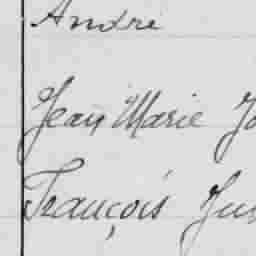 André
Jean Marie
François